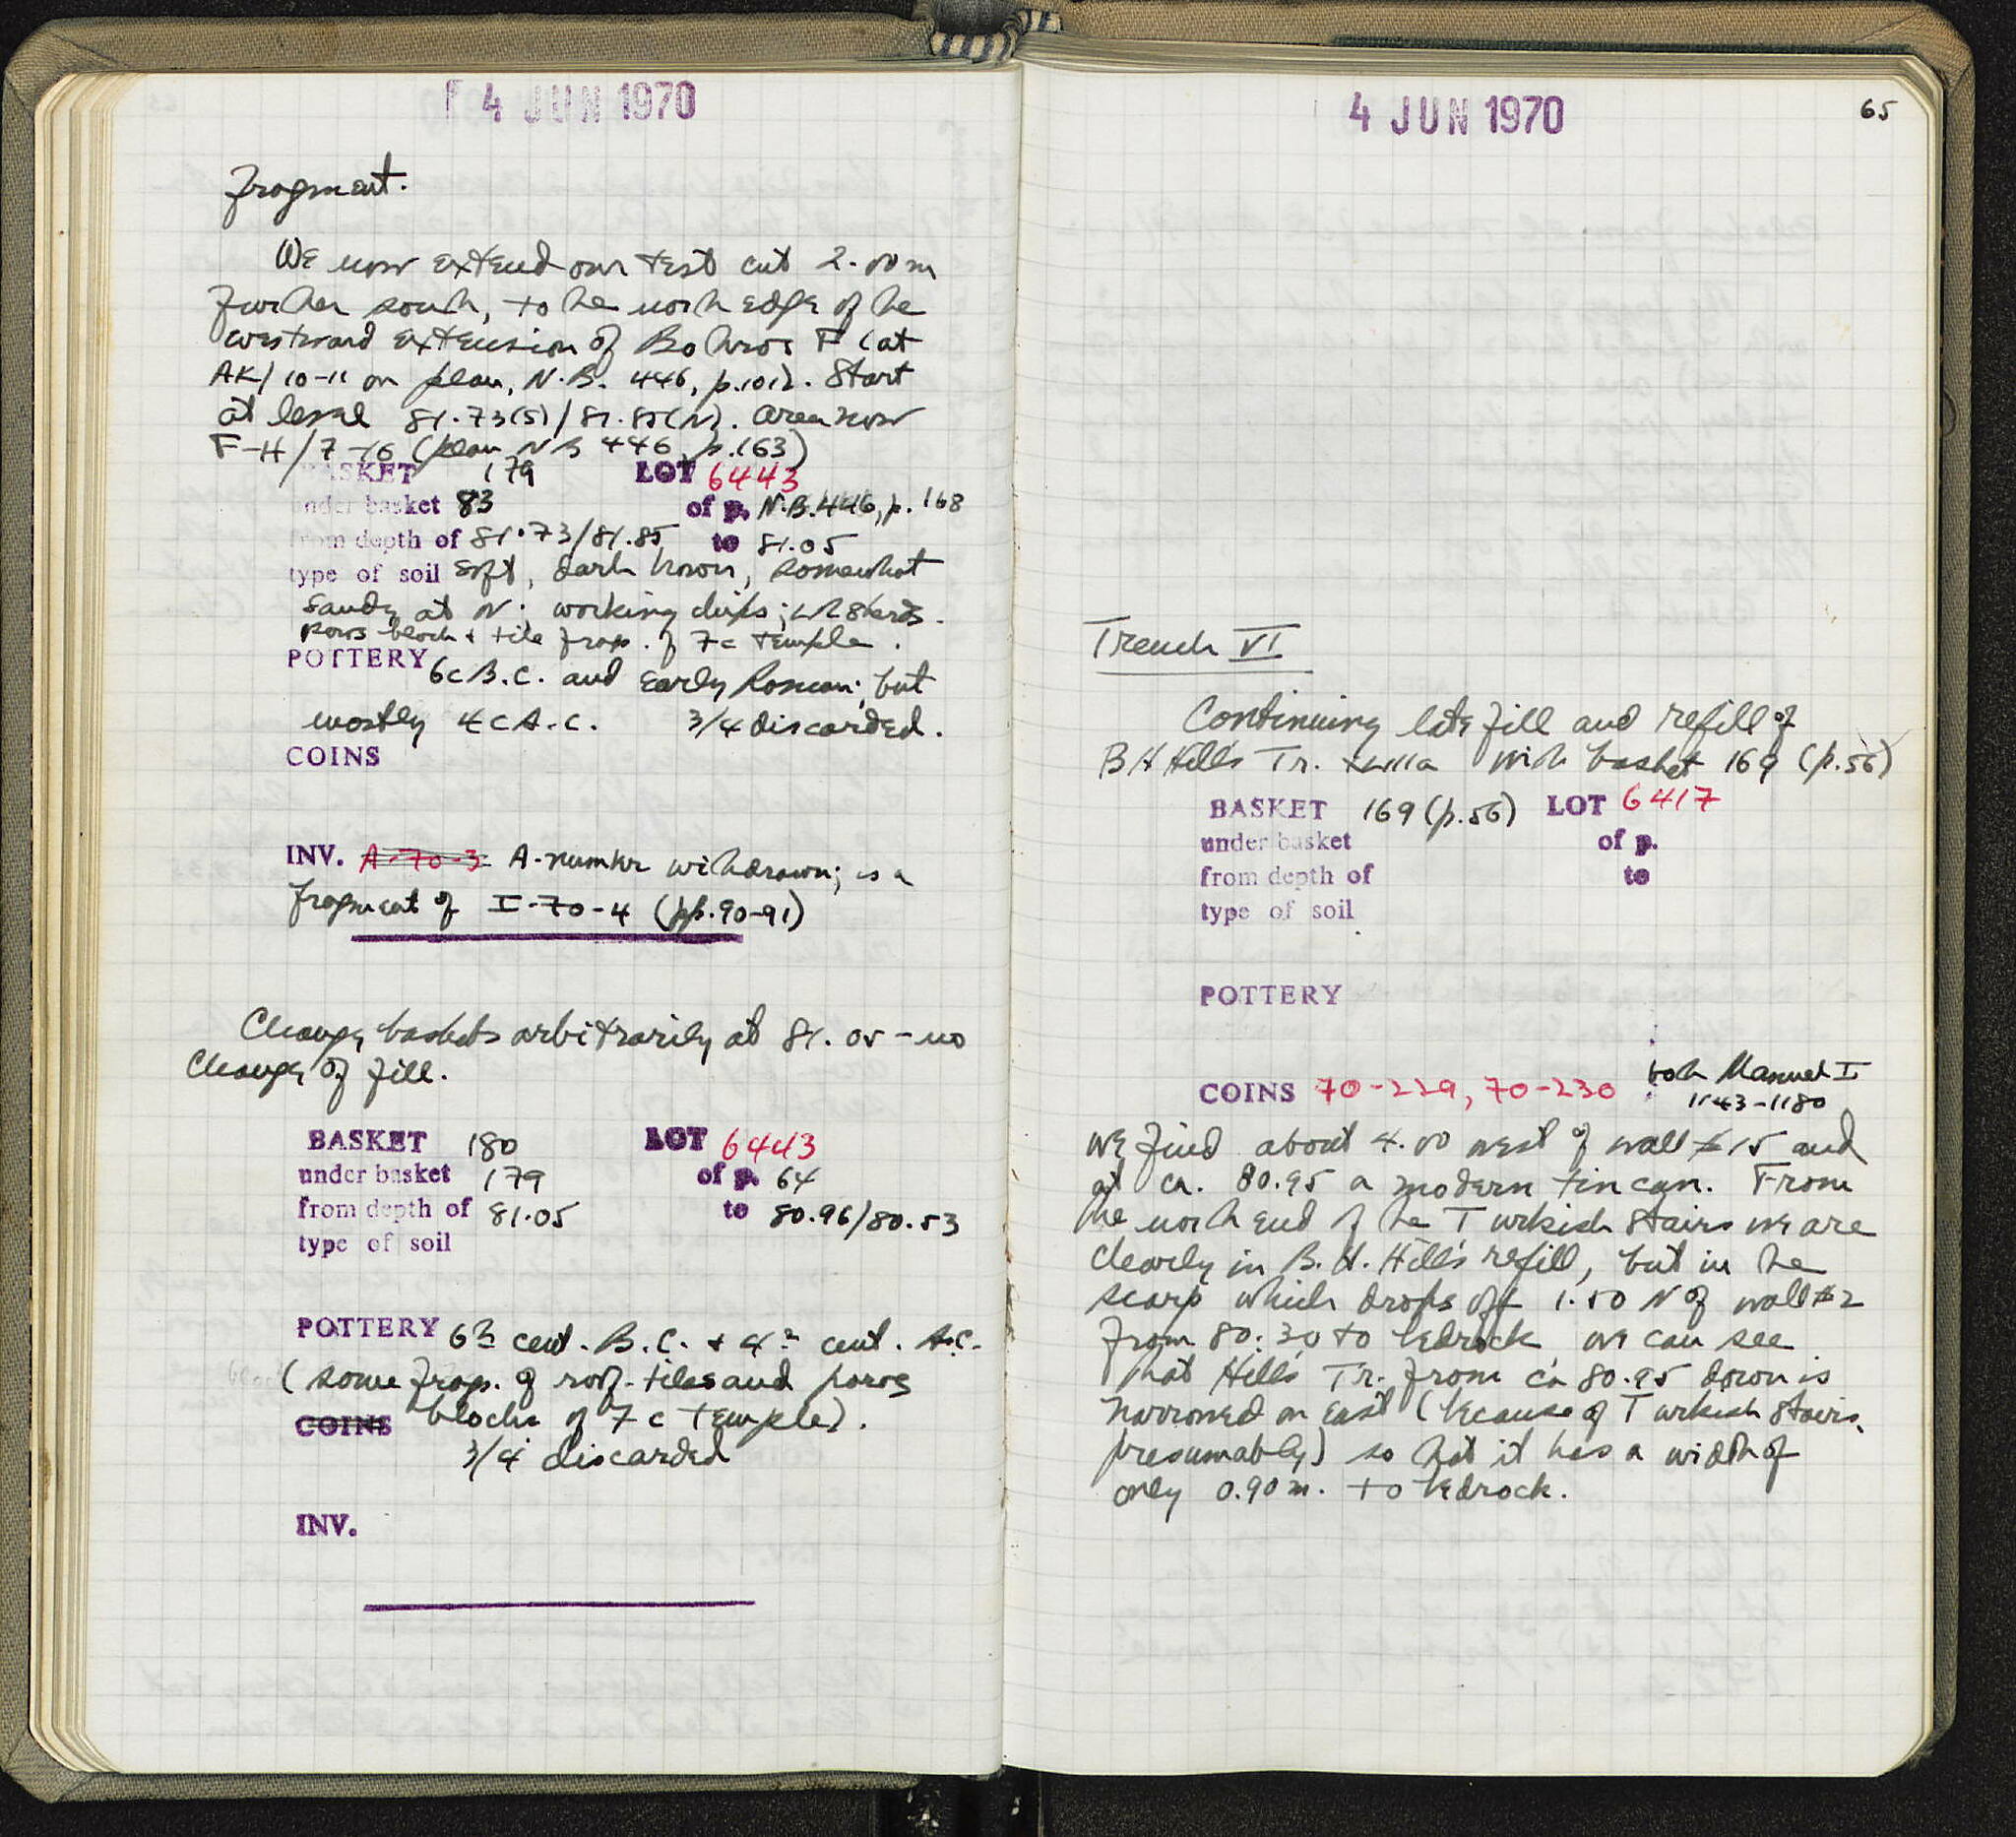 4 JUN 1970
fragment.
We now extend our test cut 2.00 m
further south, to the north edge of the
westward extension of Bothros F (at
AK/10-11 on plan, N.B. 446, p.101). Start
at level 81.73(S)/81.85(N). Area now
F-H/7-16 (plan NB 446 p.163)
BASKET 179 LOT 6443
under basket 83 of p. N.B.446, p.168
from depth of 81.73/81.85 to 81.05
type of soil soft, dark brown, somewhat
sandy at N; working chips; LR sherds.
poros block & tile frags. of 7c temple.
POTTERY 6c B.C. and Early Roman; but
mostly 4c A.C. 3/4 discarded.
COINS
INV. A-70-3 A-number withdrawn; is a
fragment of I-70-4 (pp.90-91)
Change baskets arbitrarily at 81.05 - no
change of fill.
BASKET 180 LOT 6443
under basket 179 of p. 64
from depth of 81.05 to 80.96/80.53
type of soil
POTTERY 6th cent. B.C. + 4th cent. A.C.
(some frags. of roof-tiles and poros
COINS blocks of 7c temple).
3/4 discarded
INV.
4 JUN 1970
65
Trench VI
Continuing late fill and refill of
BH Hill's Tr. with basket 169 (p.56)
BASKET 169 (p.56) LOT 6417
under basket of p.
from depth of to
type of soil
POTTERY
COINS 70-229, 70-230 both Manuel I
1143-1180
We find about 4.00 west of wall #15 and
at ca. 80.95 a modern tin can. From
the north end of the Turkish stairs we are
clearly in B.H. Hill's refill, but in the
scarp which drops off 1.50 N of wall #2
from 80.30 to bedrock we can see
that Hill's Tr. from ca 80.95 down is
narrowed on East (because of Turkish stairs,
presumably) so that it has a width of
only 0.90 m. to bedrock.